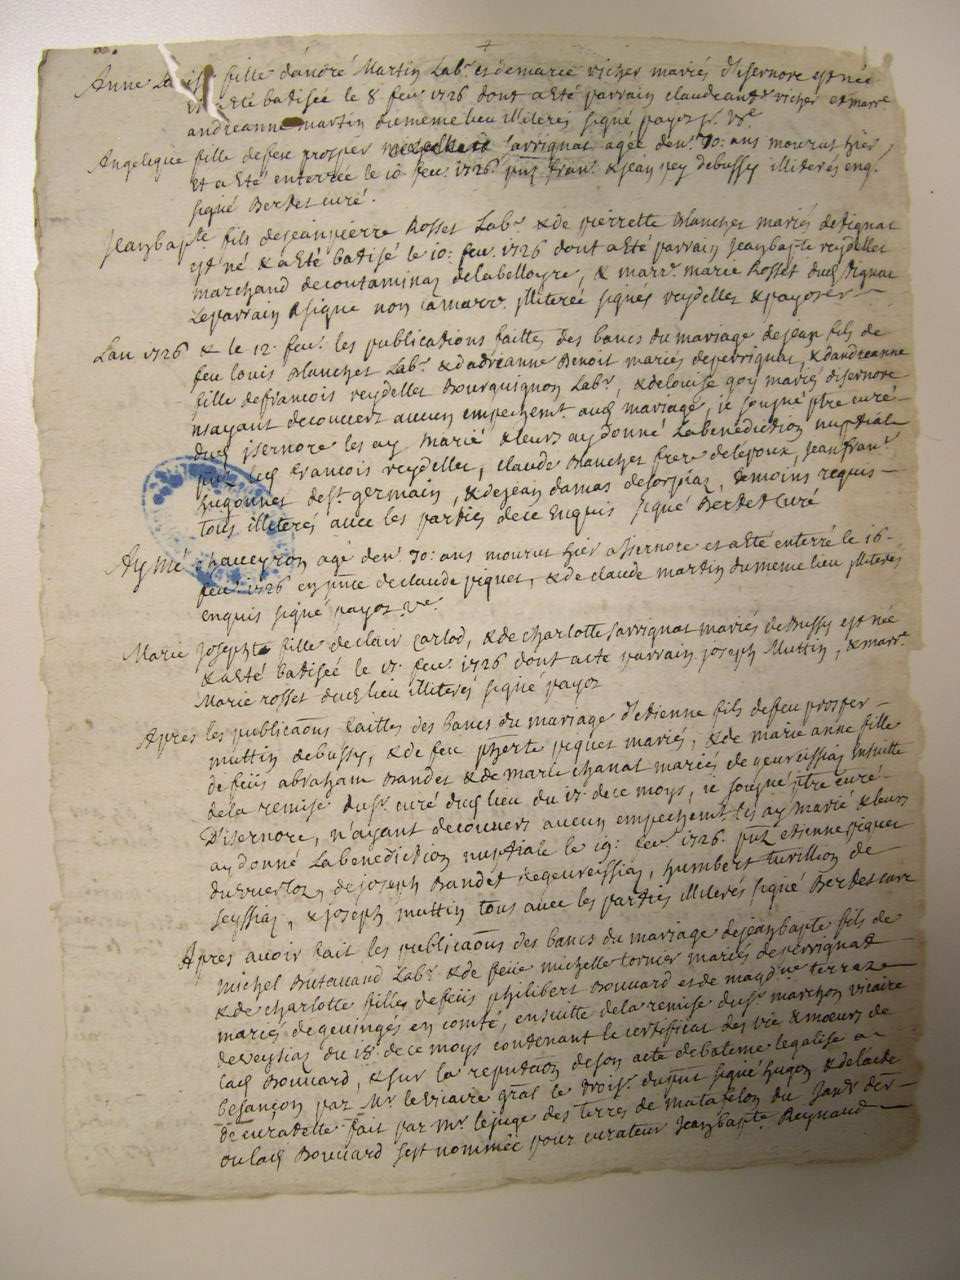 Anne fille d'andré Martin Lab.r et demarie vicher mariés d'isernore est née
a Eté batisée le 8 feu.r 1726 dont a Eté parrain claude vicher et marr.e
andréanne martin dumeme lieu illiterés signé payoz
Angelique fille defeu prosper savvignat agée den.n 70: ans mourut hier
et a Eté enterrée le 10 feu.r 1726 debussy illiterés enq.
signé Berdet curé.
Jeanbapte fils dejeanpierre Rosset Lab.r & de pierrette Blanchet mariés designat
est né & a Eté batisé le 10: feu.r 1726 dont a Eté parrain Jeanbapte reydellet
marchand decoutaminaz delabelloyre, & marr.e marie Rosset
Leparrain a signé non la marr.e illiterée signés reydellet & payoz
Lan 1726 & le 12 feu.r les publications faittes des bancs du mariage dejean fils de
feu louis Blanchet Lab.r & d'adréanne Benoit mariés deperrignat, & dandréanne
fille defrancois reydellet Bourguignon Lab.r, & delouise goy mariés disernore
nayant decouvert aucun empechem.t audt mariage, je sousigné ptre curé
dudt jsernore les ay marié & leurs ay donné Labenediction nuptiale
francois reydellet, claude Blanchet frere delepoux, Jean fran.s
hugonnet dest germain, & dejean damas temoins requis
tous illiteres avec les parties dece Enquis signé Berdet Curé
Aymé chaveyron agé den.n 70: ans mourut hier a isernore et a Eté enterré le 16
feu.r 1726 en pnce declaude piquet, & de claude martin dumeme lieu illiterés
enquis signé payoz
Marie Josephte fille declair Carlod, & de charlotte savvignat mariés de Bussy est née
& a Eté batisée le 17 feu.r 1726 dont a eté parrain joseph Muttin, & marr.e
Marie rosset dudt lieu illiterés signé payoz
Apres les publicaons faittes des bancs du mariage d'etienne fils defeu prosper
muttin debussy, & de feu piquet mariés, & de marie anne fille
defeüs abraham Bandet & de marie chanat mariés de geureissiaz ensuitte
dela remise dusr curé dudt lieu du 17 de ce moys, je sousigné ptre curé
D'isernore, n'ayant decouvert aucun empechem.t les ay marié & leurs
ay donné Labenediction nuptiale le 19: feu.r 1726 etienne piquet
dejoseph Bandet degeureissiaz, humbert turillion de
seyssiaz, & joseph muttin tous avec les parties illiterés signé Berdet curé
Apres avoir fait les publicaons des bancs du mariage dejeanbapte fils de
michel Butavand Lab.r & de feüe michelle tornier mariés deperrignat
& de charlotte fille defeüs philibert Bouvard et de terraz
mariés degevingés en comté, ensuitte dela remise dusr marchon vicaire
deveysiaz du 18 de ce moys contenant le certificat des vie & moeurs de
ladt Bouvard, & sur la deson acte debateme legalisé a
besançon par Mr levicaire gnal le signé hugon & delacte
de curatelle fait par mr lejuge des terres de matafelon du
ou ladt Bouvard s'est nommée pour curateur Jeanbapte Reynaud